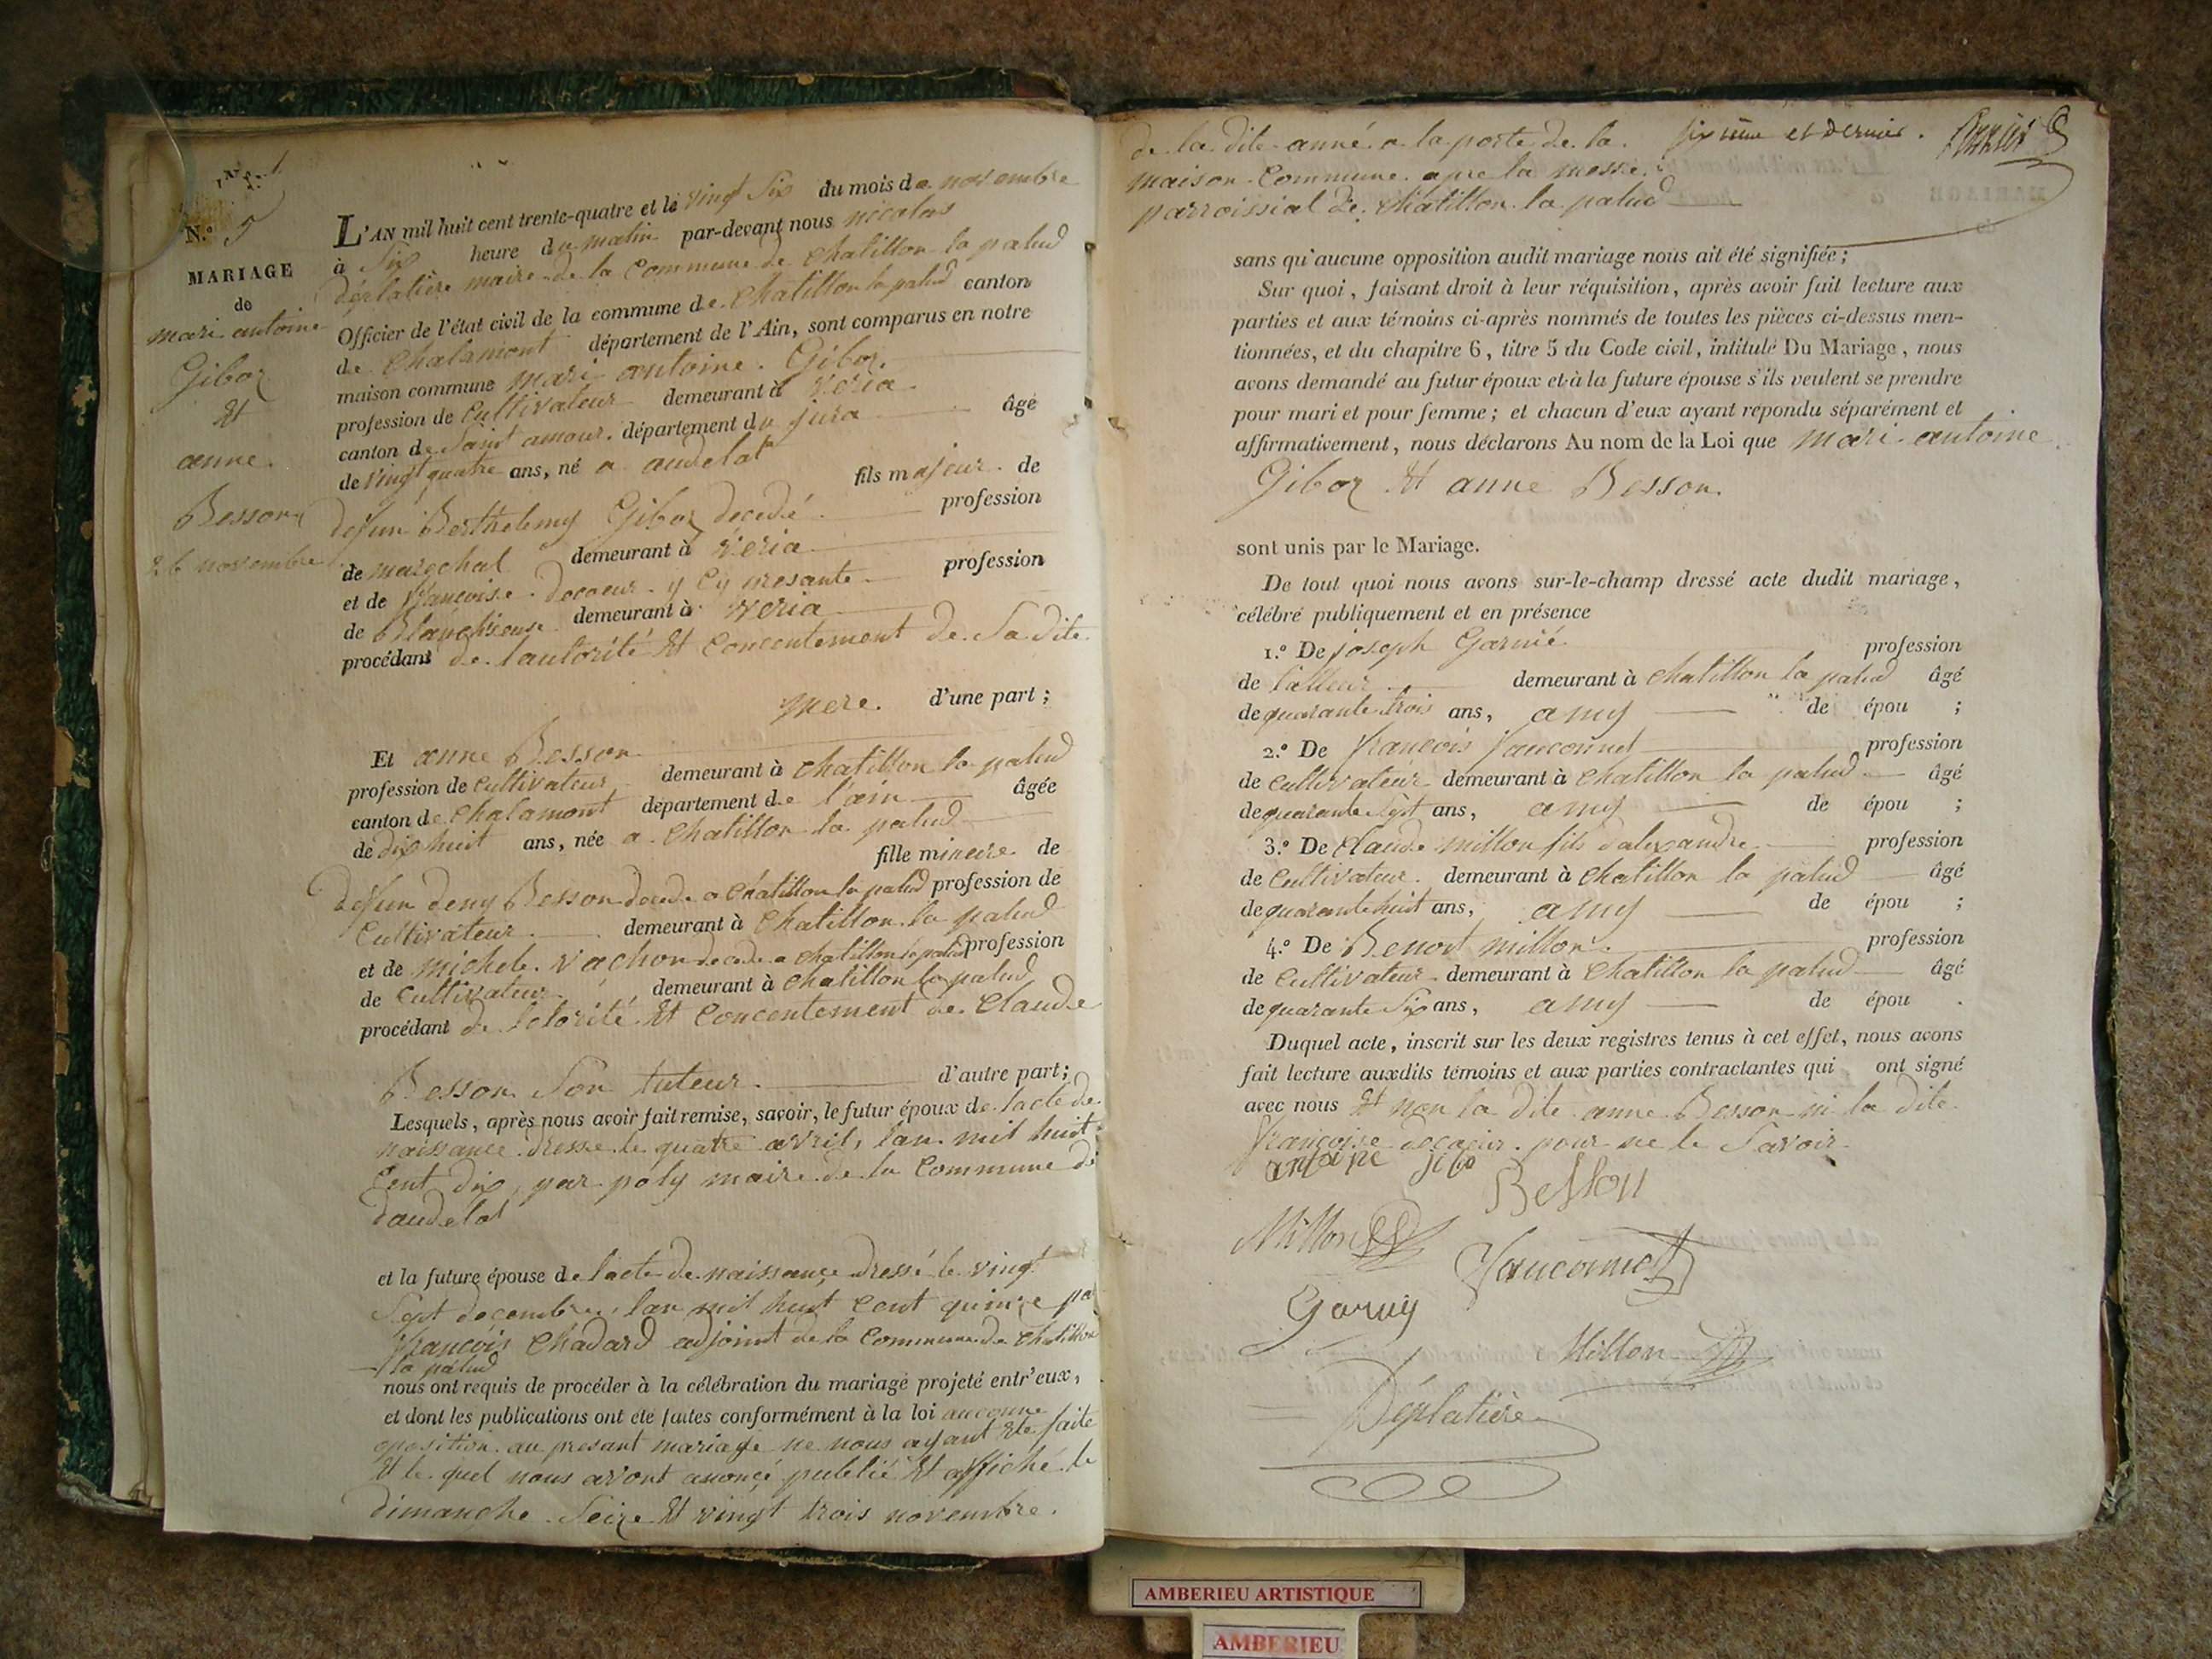 N.º 5
MARIAGE
de
mari antoine
Giboz
et
anne
Besson
26 novembre
L'AN mil huit cent trente-quatre et le vingt six du mois de novembre
à six heure du matin par-devant nous nicolas
déplatière maire de la commune de chatillon la palud
Officier de l'état civil de la commune de chatillon la palud canton
de chalamont département de l'Ain, sont comparus en notre
maison commune mari antoine Giboz
profession de cultivateur demeurant à veria
canton de saint amour département du jura âgé
de vingt quatre ans, né a audelat
fils majeur de
defun Berthelemy Giboz decedé profession
de marechal demeurant à veria
et de françoise decoeur y cy presante profession
de Blanchieuse demeurant à veria
procédant de lautorité et concentement de sa dite
mere d'une part ;
Et anne Besson
profession de cultivateur demeurant à chatillon la palud
canton de chalamont département de l'ain âgée
de dix huit ans, née a chatillon la palud
fille mineure de
defun deny Besson decede a chatillon la palud profession de
cultivateur demeurant à chatillon la palud
et de michele vachon decede a chatillon la palud profession
de cultivateur demeurant à chatillon la palud
procédant de lotorité et concentement de claude
Besson son tuteur d'autre part;
Lesquels, après nous avoir fait remise, savoir, le futur époux de lacte de
naissance dresse le quatre avril, lan mil huit
cent dix, par poly maire de la commune de
daudelat
et la future épouse de lacte de naissance dressé le vingt
sept decembre, lan mil huit cent quinze par
françois chadard adjoint de la commune de chatillon
la palud
nous ont requis de procéder à la célébration du mariage projeté entr'eux,
et dont les publications ont été faites conformément à la loi auconne
oposition au presant mariage ne nous ayant ete faite
et le quel nous avont anoncé publié et affiché le
dimanche seize et vingt trois novembre.
de la dite anné a la porte de la sixième et dernier.
maison commune apre la messe
parroissial de chatillon la palud
sans qu'aucune opposition audit mariage nous ait été signifiée ;
Sur quoi, faisant droit à leur réquisition, après avoir fait lecture aux
parties et aux témoins ci-après nommés de toutes les pièces ci-dessus men-
tionnées, et du chapitre 6, titre 5 du Code civil, intitulé Du Mariage, nous
avons demandé au futur époux et à la future épouse s'ils veulent se prendre
pour mari et pour femme ; et chacun d'eux ayant répondu séparément et
affirmativement, nous déclarons Au nom de la Loi que mari antoine
Giboz et anne Besson.
sont unis par le Mariage.
De tout quoi nous avons sur-le-champ dressé acte dudit mariage,
célébré publiquement et en présence
1.º De joseph Garnié profession
de tailleur demeurant à chatillon la palud âgé
de quarante trois ans, amy de épou ;
2.º De françois fauconnet profession
de cultivateur demeurant à chatillon la palud âgé
de quarante sept ans, amy de épou ;
3.º De claude millon fils dalexandre profession
de cultivateur demeurant à chatillon la palud âgé
de quarante huit ans, amy de épou ;
4.º De Benoit millon profession
de cultivateur demeurant à chatillon la palud âgé
de quarante six ans, amy de épou .
Duquel acte, inscrit sur les deux registres tenus à cet effet, nous avons
fait lecture auxdits témoins et aux parties contractantes qui ont signé
avec nous et non la dite anne Besson ni la dite
françoise decoeur pour ne le savoir
antoine jibo
Besson
Millon
fauconnet
Garny
Millon
Déplatière
AMBERIEU ARTISTIQUE
AMBERIEU